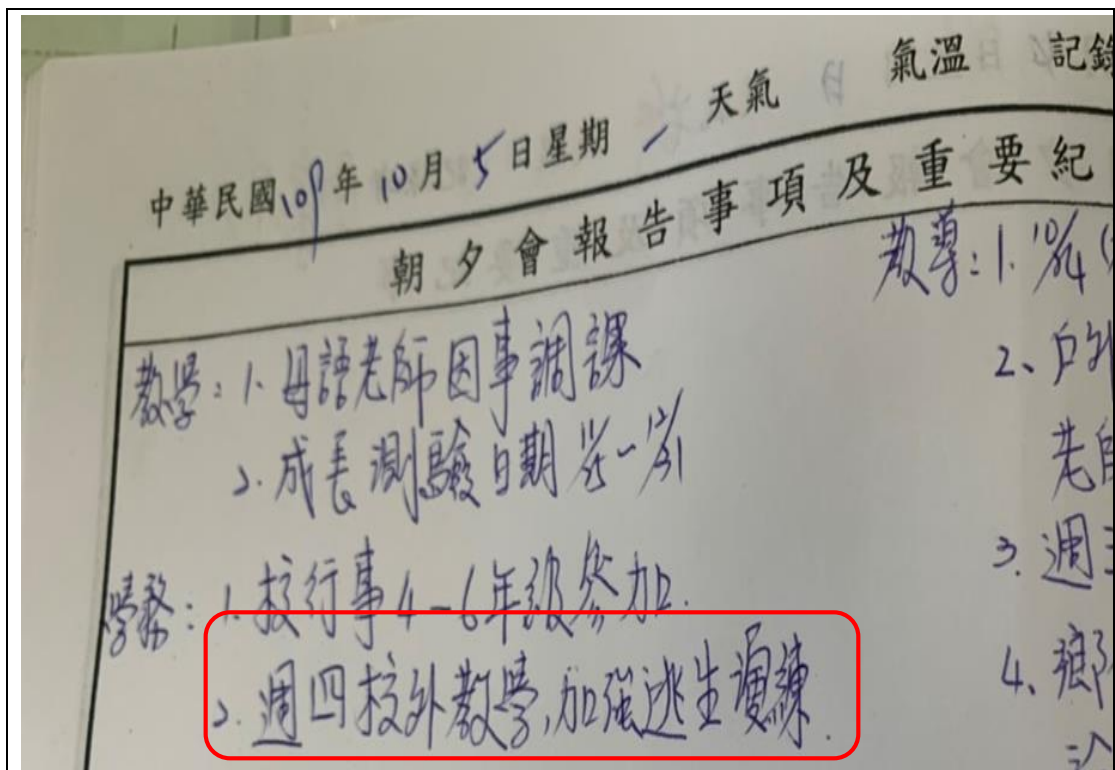 中華民國109年10月5日星期一 天氣 氣溫 記錄
朝夕會報告事項及重要紀
教學：1. 母語老師因事調課
2. 成長測驗日期
學務：1. 校行事4-6年級參加.
2. 週四校外教學,加強逃生演練.
教導：1. 10/14
2、戶外
老師
3. 週三
4、鄉